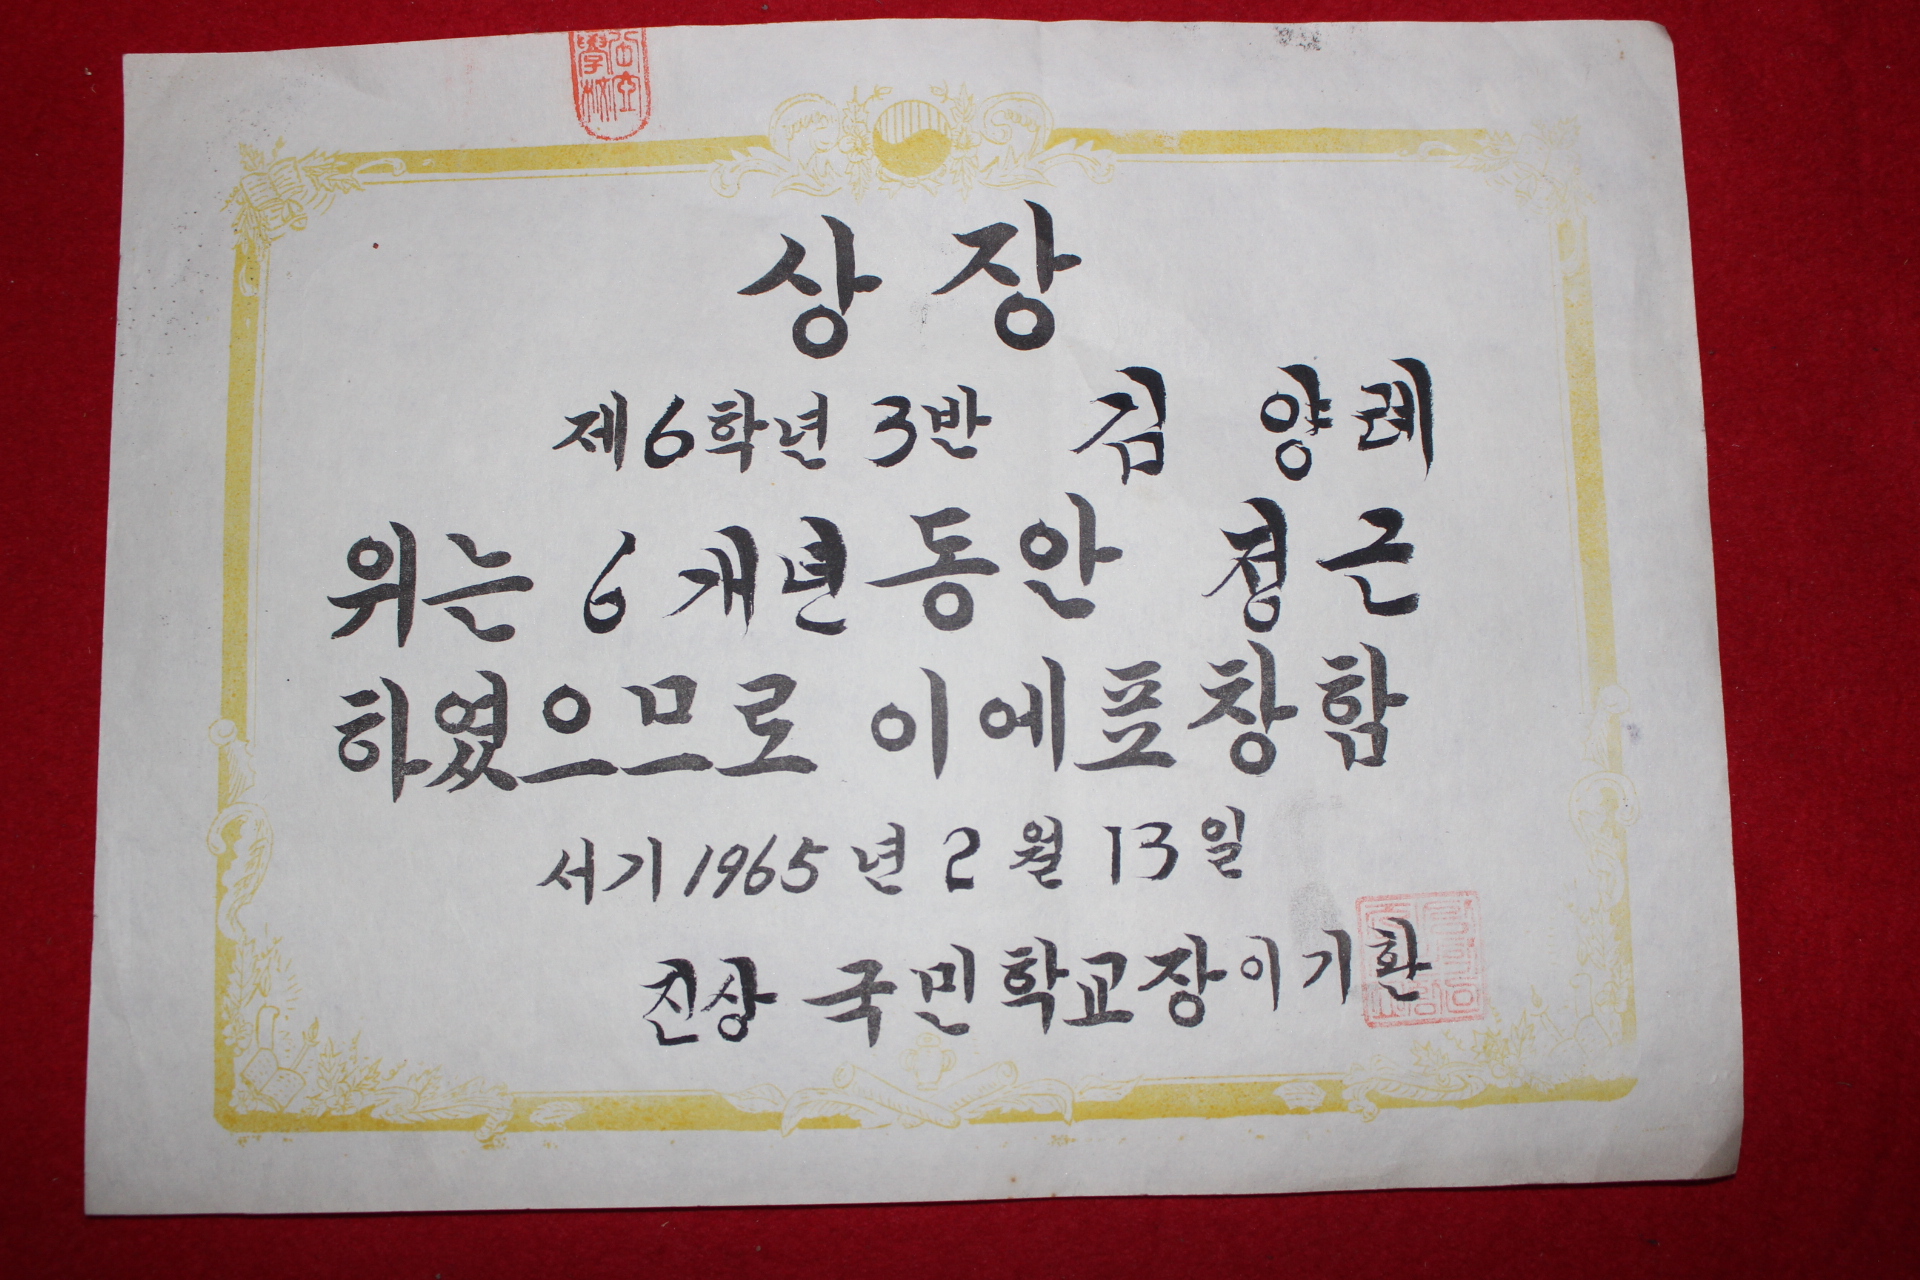 상장
제6학년 3반 김 양례
위는 6개년동안 정근
하였으므로 이에표창함
서기 1965년 2월 13일
진상 국민학교장 이기환